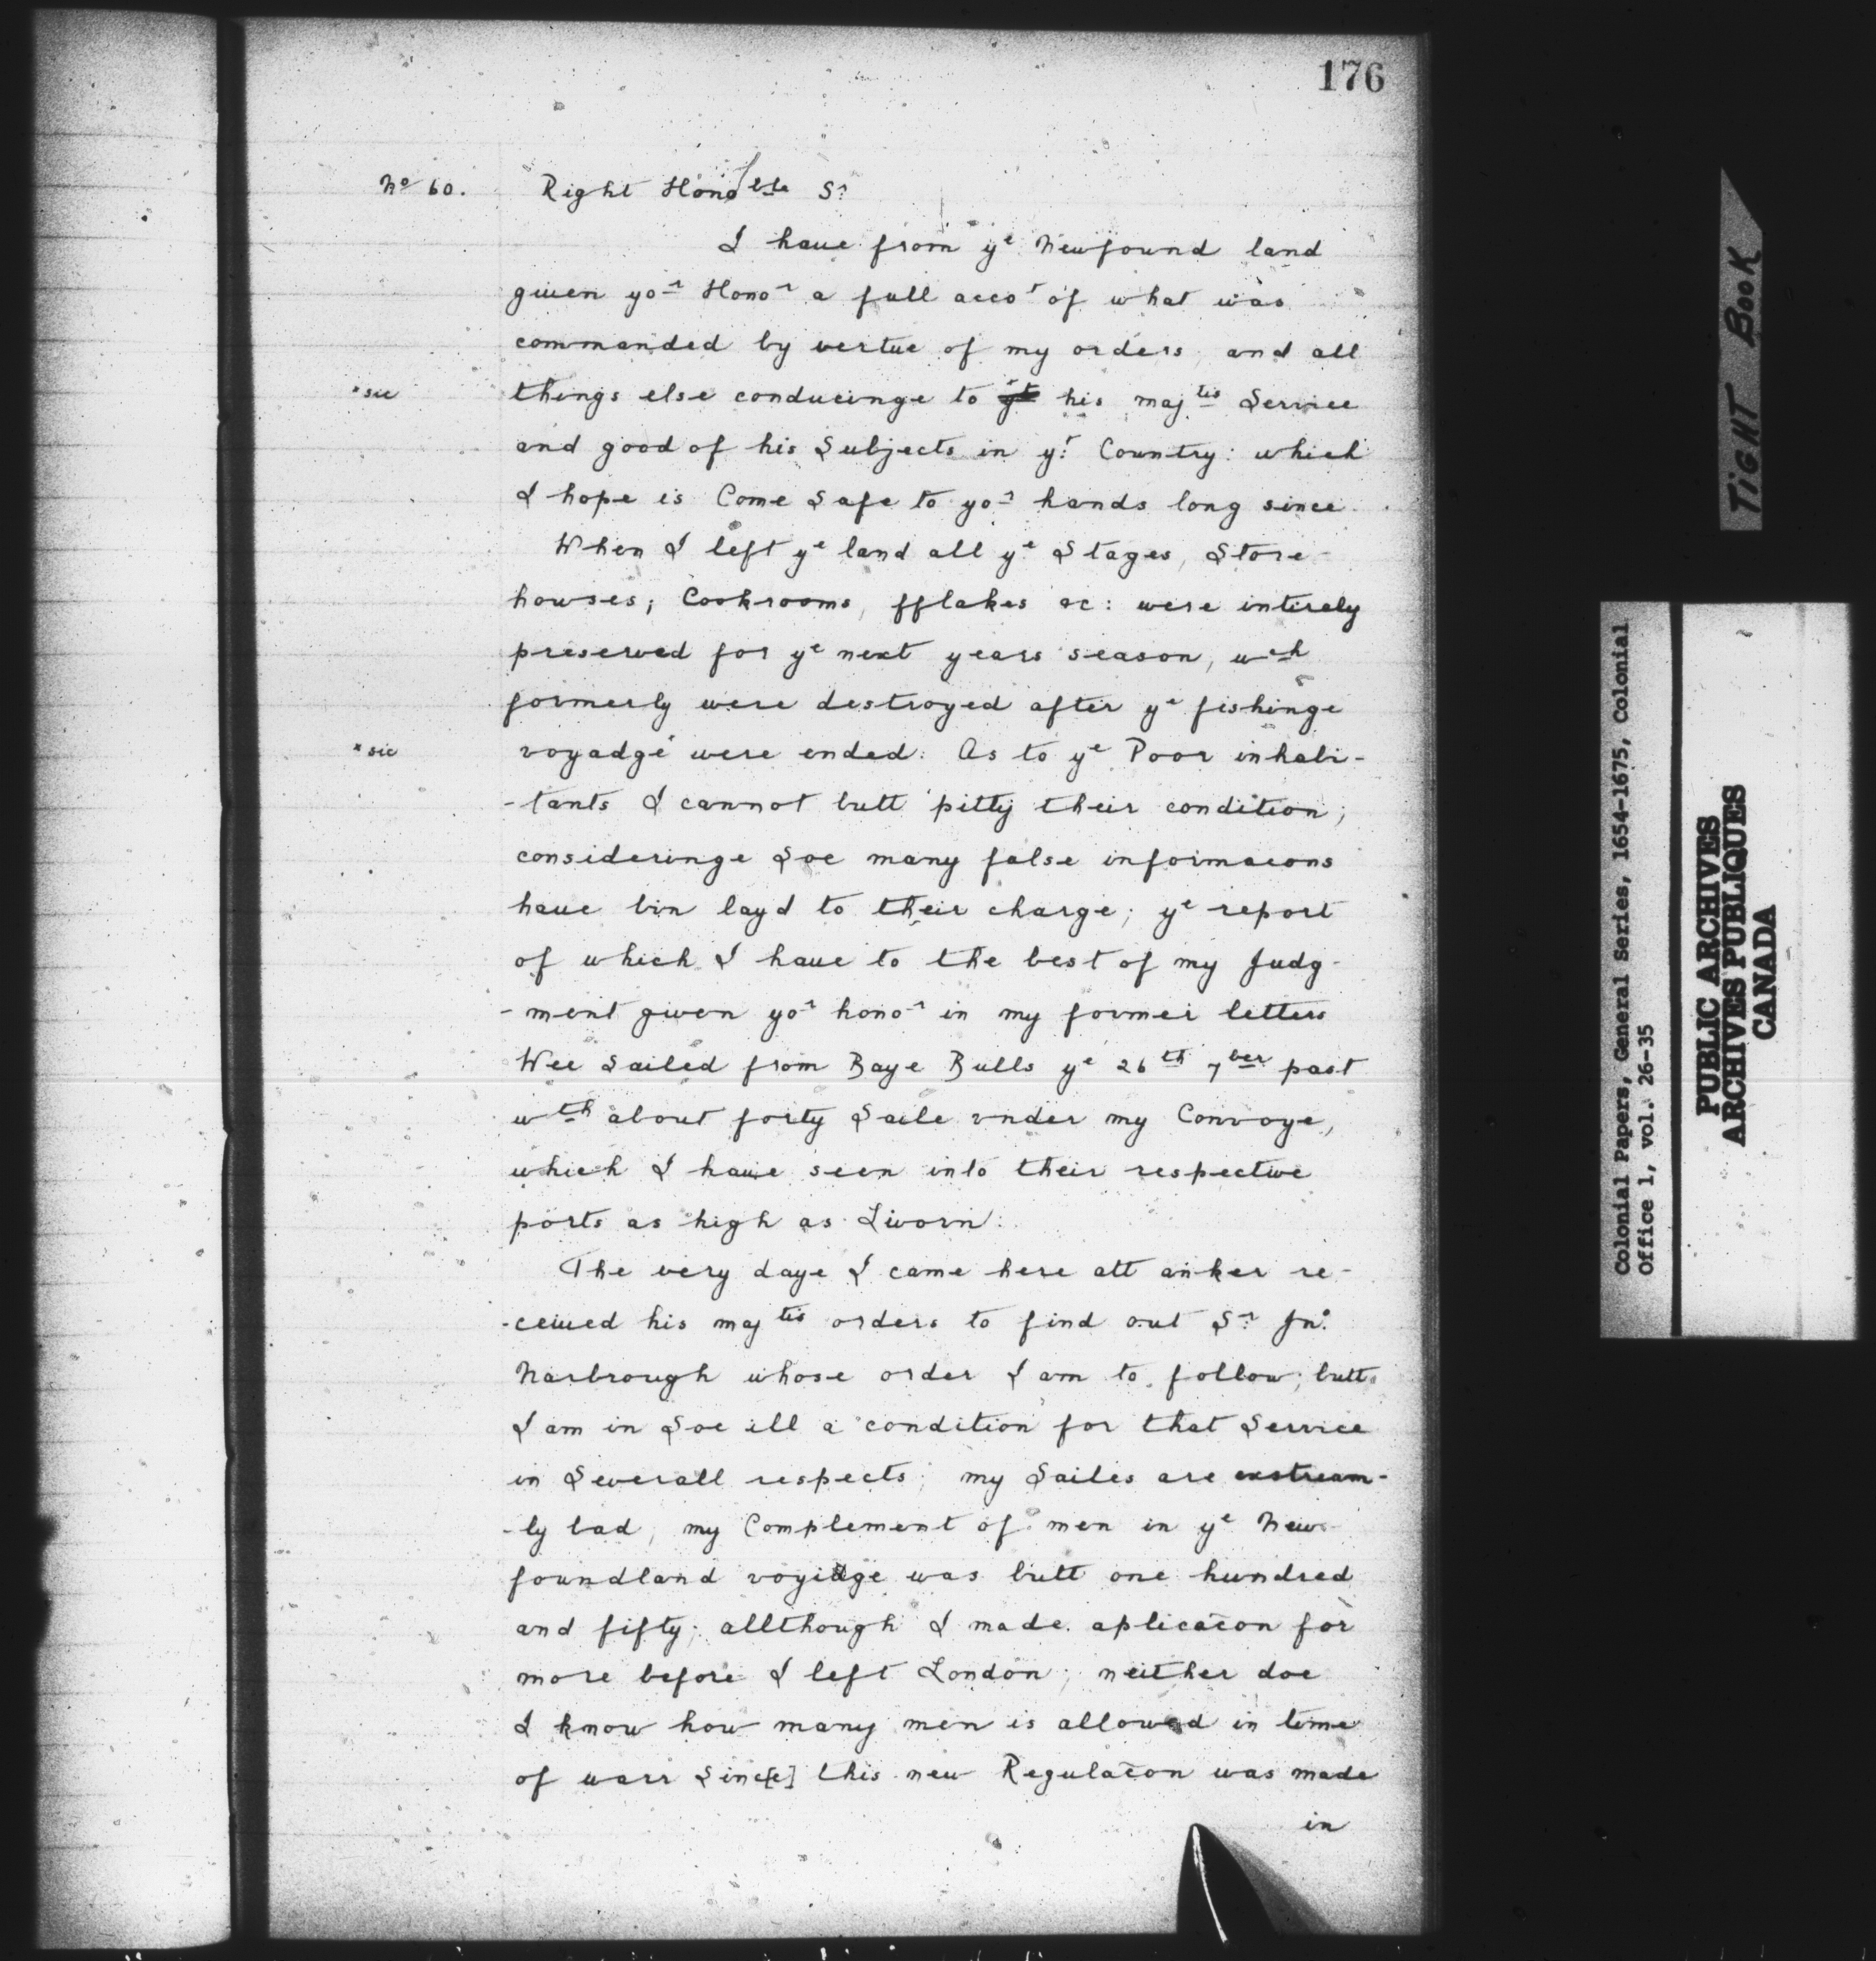 176
No 60. Right Honoble Sr
I haue from ye Newfound land
giuen yor Honor a full accot of what was
commanded by vertue of my orders, and all
*sic things else conducinge to yt his majtis Service
and good of his Subjects in yt Country: which
I hope is Come Safe to yor hands long since.
When I left ye land all ye Stages, Store-
howses; Cookrooms, fflakes &c: were intirely
preserved for ye next years season, wch
formerly were destroyed after ye fishinge
*sic voyadge were ended: As to ye Poor inhabi-
-tants I cannot butt pitty their condition;
consideringe Soe many false informacons
haue bin layd to their charge; ye report
of which I haue to the best of my Judg-
-ment given yor honor in my former letters
Wee Sailed from Baye Bulls ye 26th 7ber past
wth about forty Saile vnder my Convoye,
which I haue seen into their respective
ports as high as Livorn:
The very daye I came here att anker re-
-ceiued his majtis orders to find out Sr Jno.
Narbrough whose order I am to follow; butt
I am in Soe ill a condition for that Service
in Severall respects; my Sailes are exstream-
-ly bad, my Complement of men in ye New-
foundland voyidge was butt one hundred
and fifty; allthough I made aplicacon for
more before I left London; neither doe
I know how many men is allowed in time
of warr Sinc[e] this new Regulacon was made
in
TIGHT BOOK
Colonial Papers, General Series, 1654-1675, Colonial
Office 1, vol. 26-35
PUBLIC ARCHIVES
ARCHIVES PUBLIQUES
CANADA